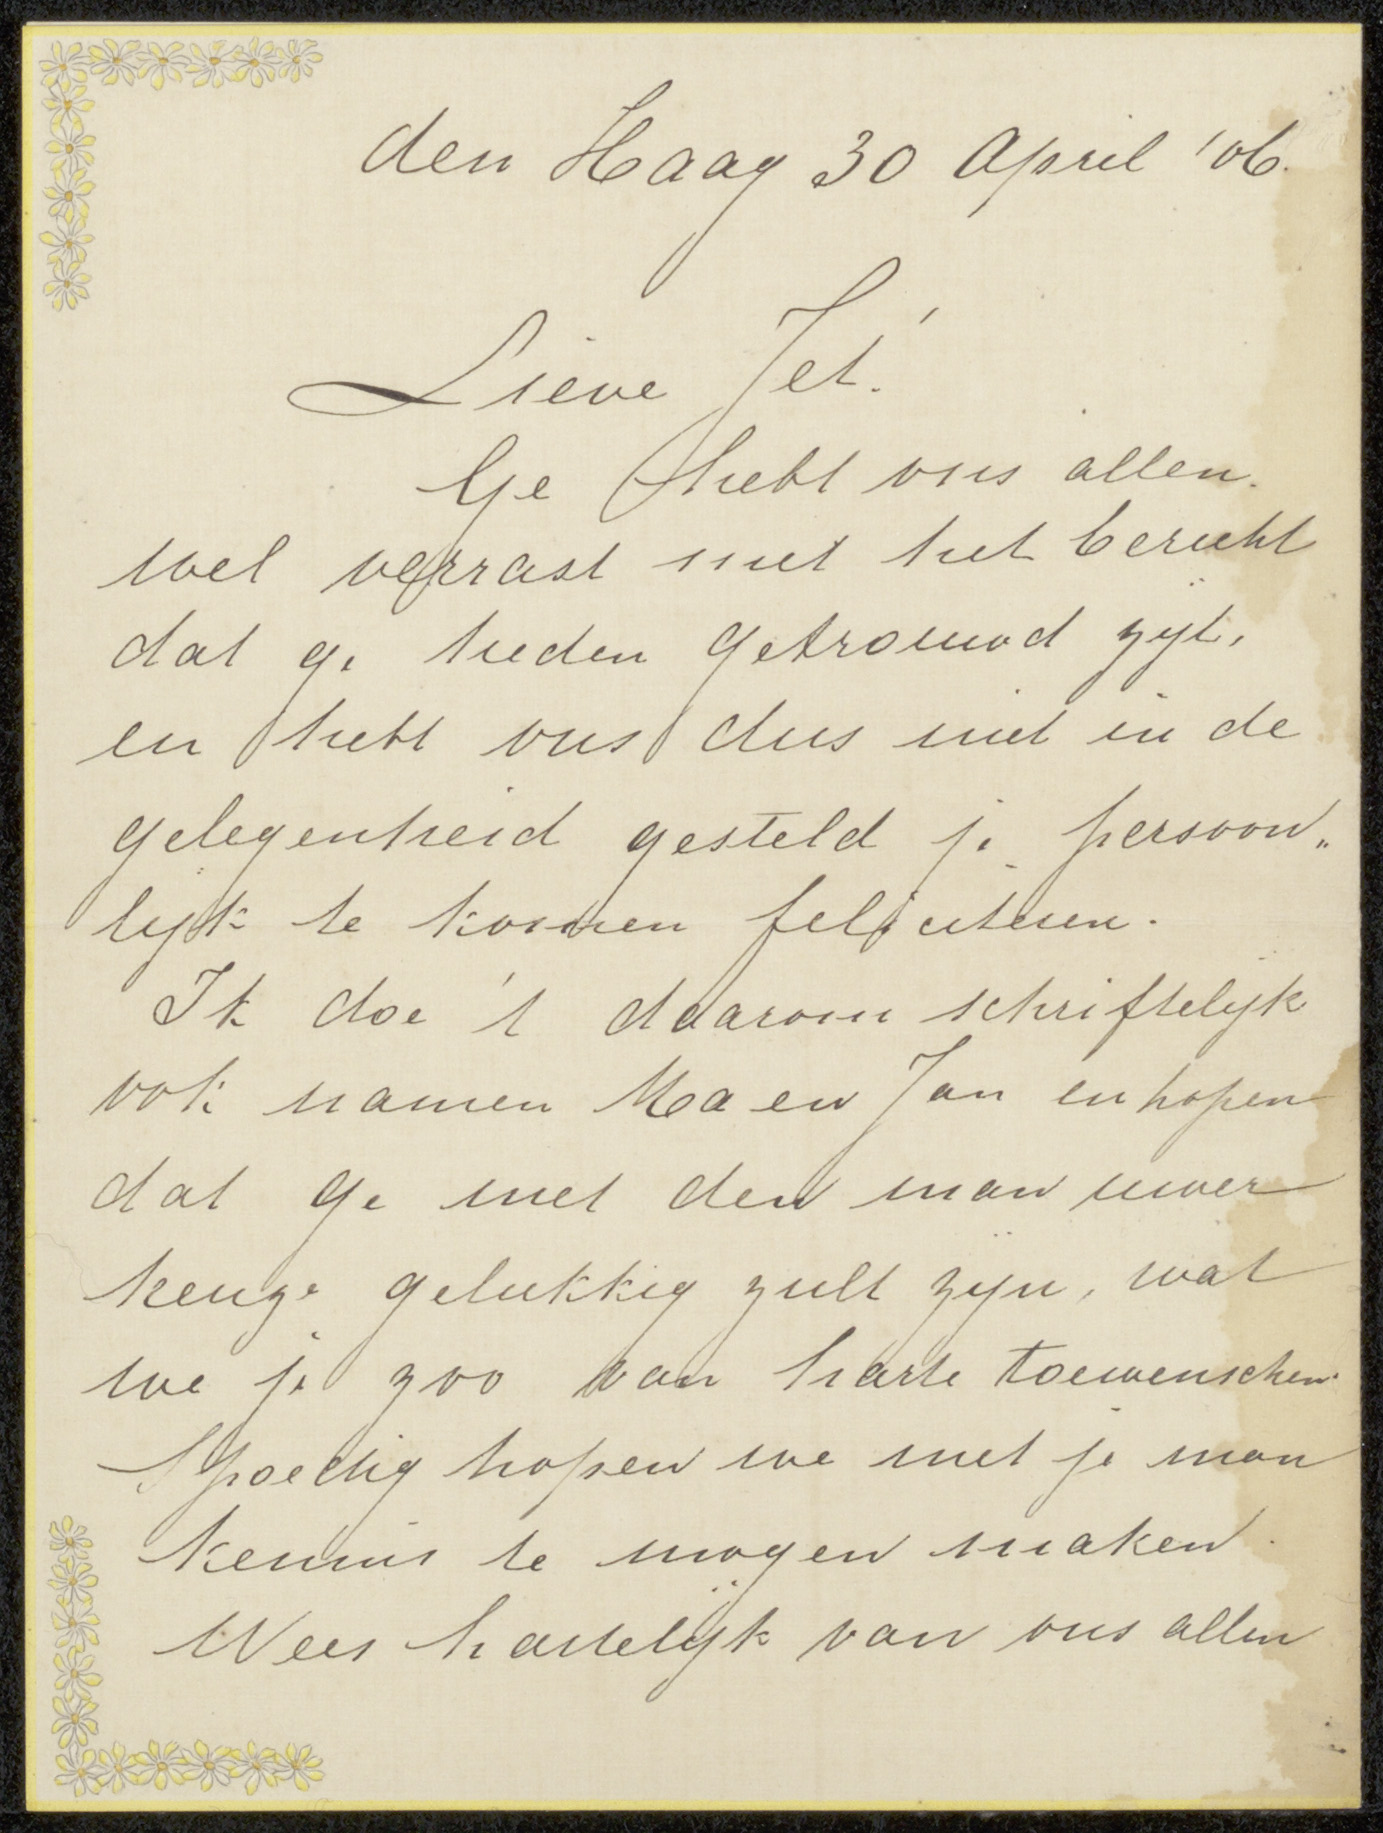 den Haag 30 April '06.
Lieve Jet!
Ge hebt ons allen
wel verrast met het bericht
dat ge heden getrouwd zijt,
en hebt ons dus niet in de
gelegenheid gesteld je persoon„
lijk te komen feliciteren.
Ik doe 't daarom schriftelijk
ook namen Ma en Jan en hopen
dat ge met den man uwer
keuze gelukkig zult zijn, wat
we je zoo van harte toewenschen.
Spoedig hopen we met je man
kennis te mogen maken.
Wees hartelijk van ons allen